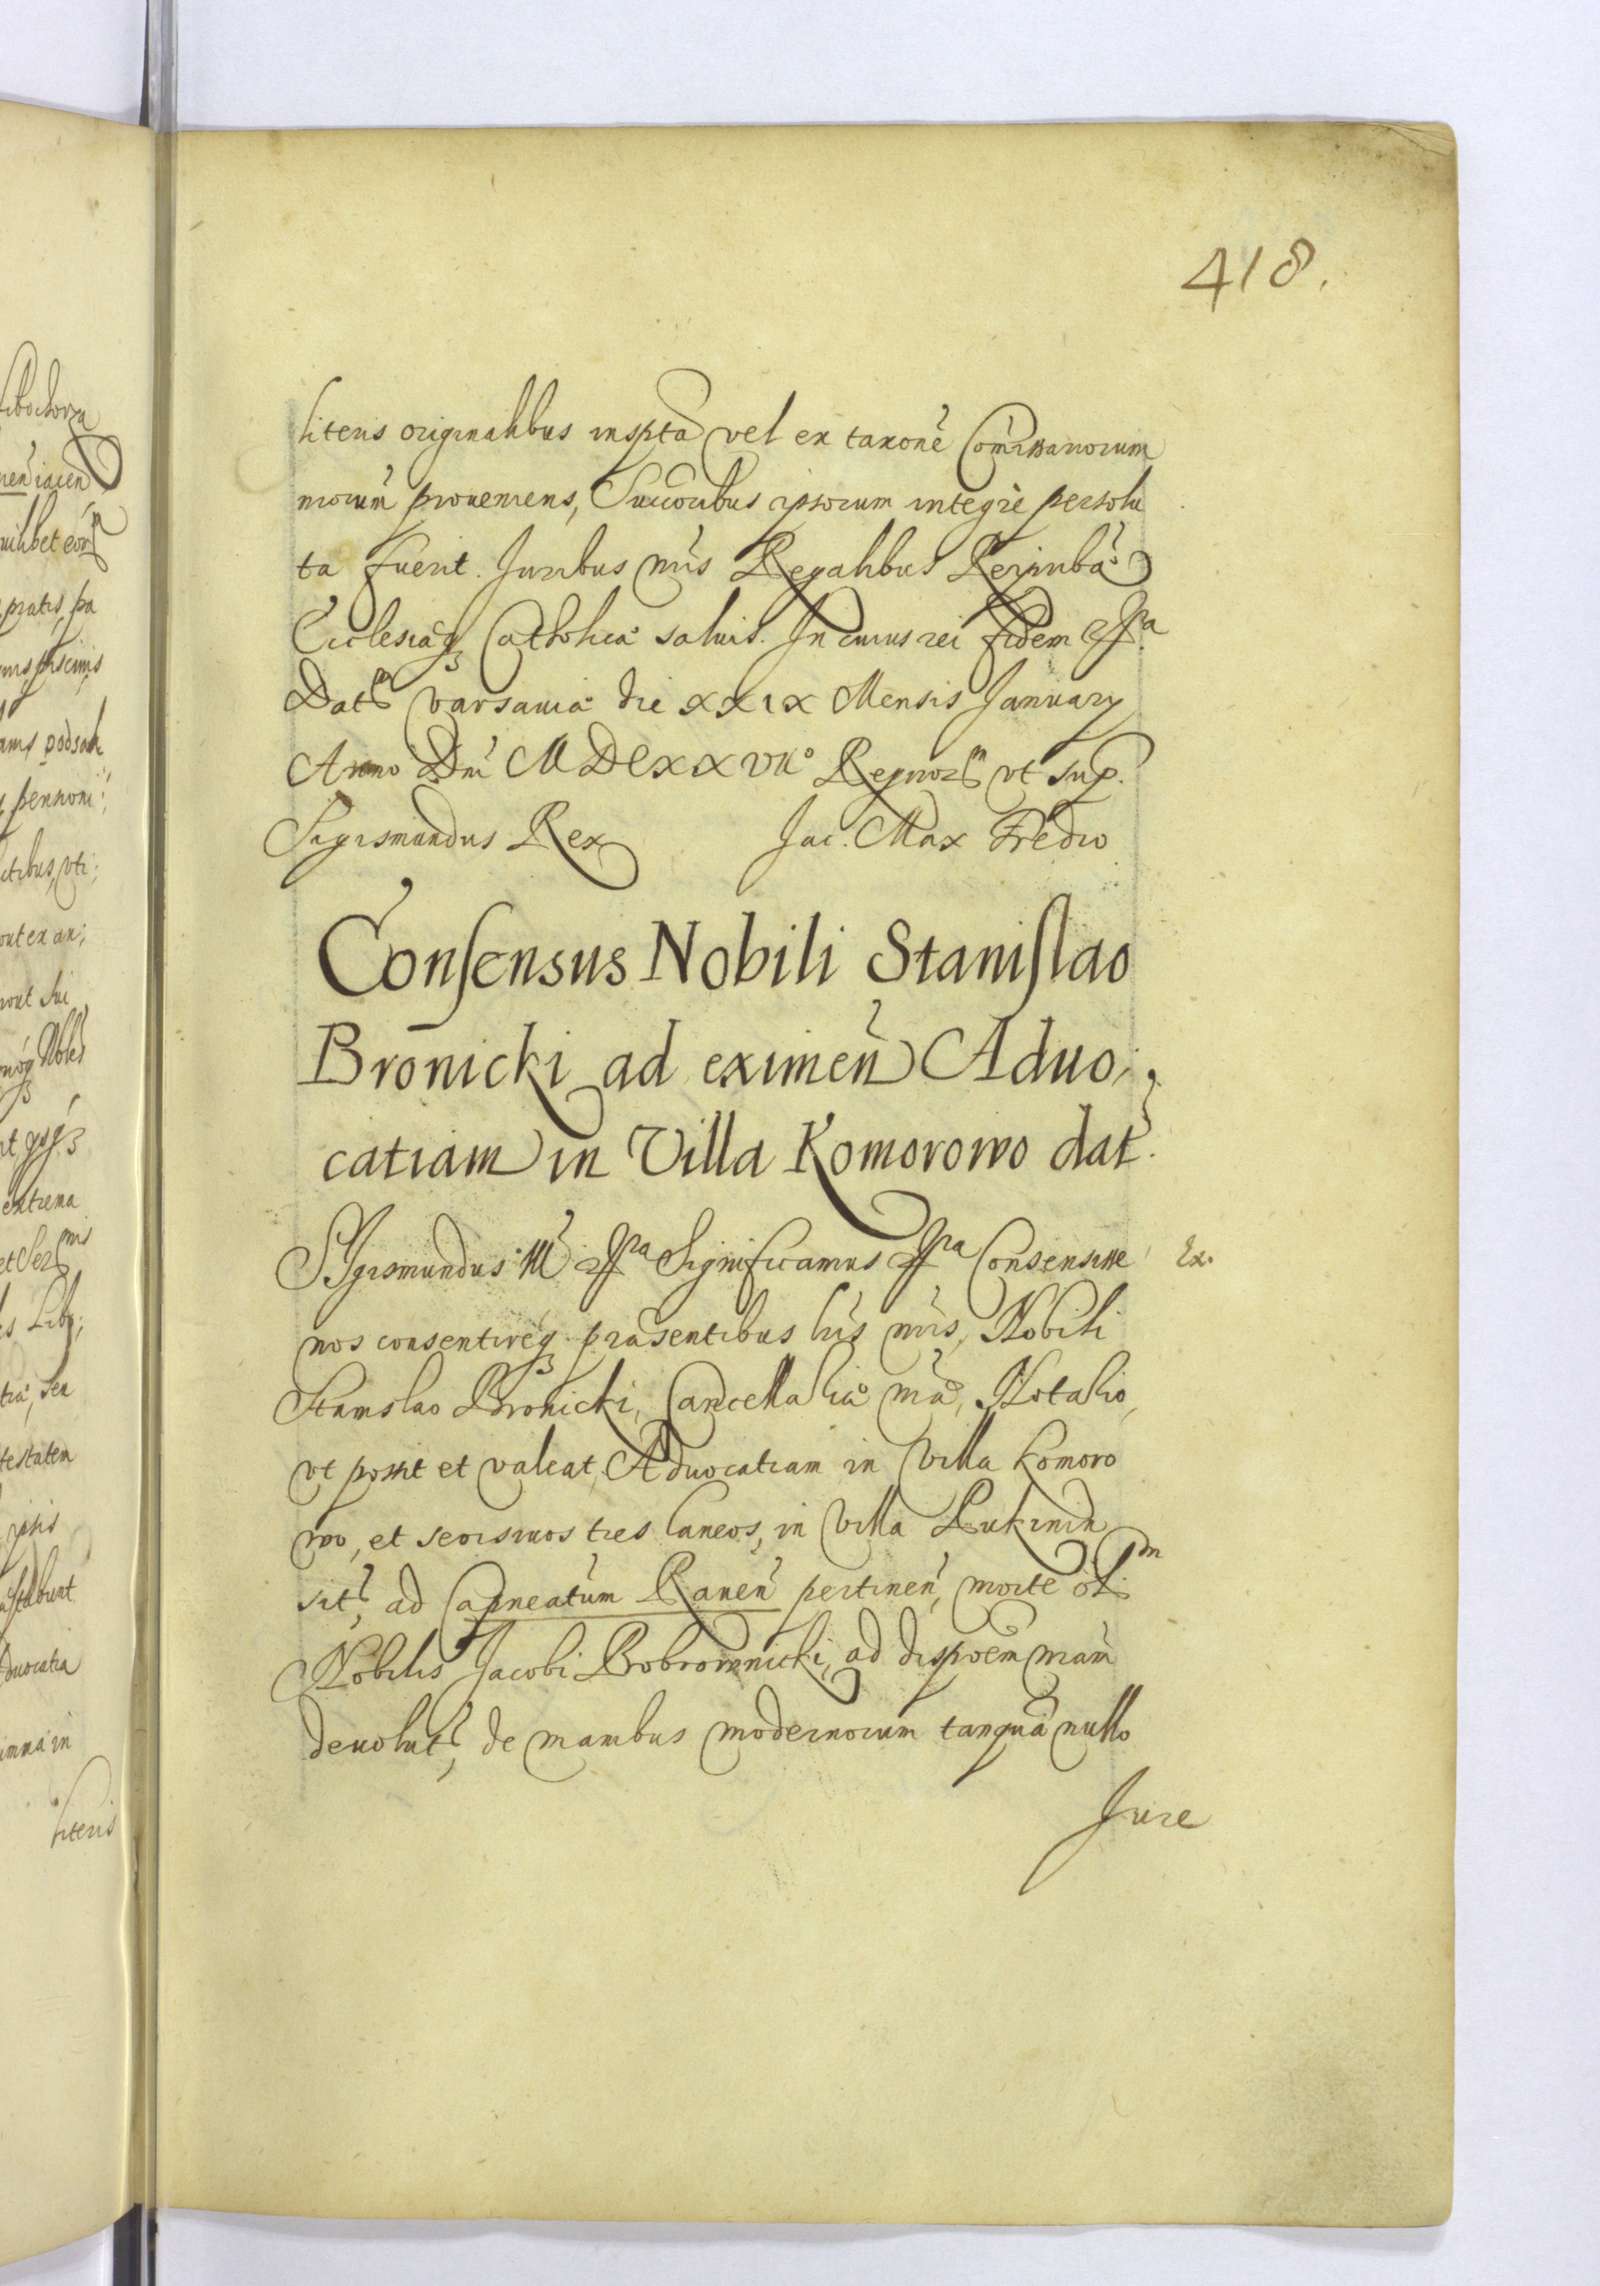 418.
literis originalibus inspta vel ex taxoné Comissariorum
niorum proueniens, Succoribus ipsorum integre persolu
ta fuerit. Juribus nris Regalibus Reipubca
Ecclesiaq Catholica saluis. In cuius rei fidem
Dat Varsauia die XXIX Mensis January
Anno Dni MDCXXVII° Regnor vt sup.
Sigismundus Rex Jac. Max Fredro
Consensus Nobili Stanislao
Bronicki ad eximen Aduo
catiam in Villa Komorowo dat.
Sygismundus III Significamus Consensisse
Ex.
nos consentireq præsentibus lris nris, Nobili
Stanislao Bronicki, Cancellaria nra, Notario,
vt possit et valeat, Aduocatiam in Villa Komoro
wo, et seorsiuos tres laneos, in Villa
sit, ad Capneatum Rauen pertinen, morte oli
Nobilis Jacobi Bobrownicki, ad dispoem nram
deuolut, de manibus modernorum tanquā nullo
Jure